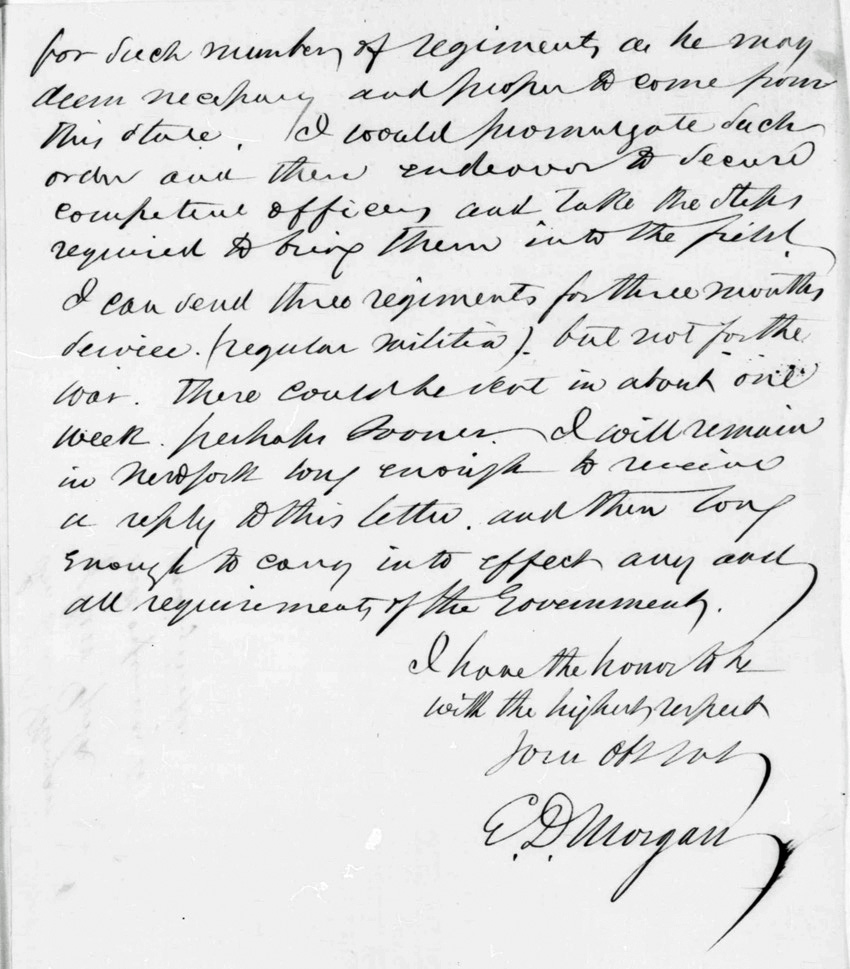 for such number of regiments as he may
deem necessary and proper to come from
this state. I would promulgate such
order and then endeavor to secure
competent officers and take the steps
required to bring them into the field.
I can send three regiments for three months
service. (regular militia). but not for the
war. These could be sent in about one
week. perhaps sooner. I will remain
in New York long enough to receive
a reply to this letter. and then long
enough to carry into effect any and
all requirements of the Government.
I have the honor to be
with the highest respect
Your Obt Svt
E. D. Morgan